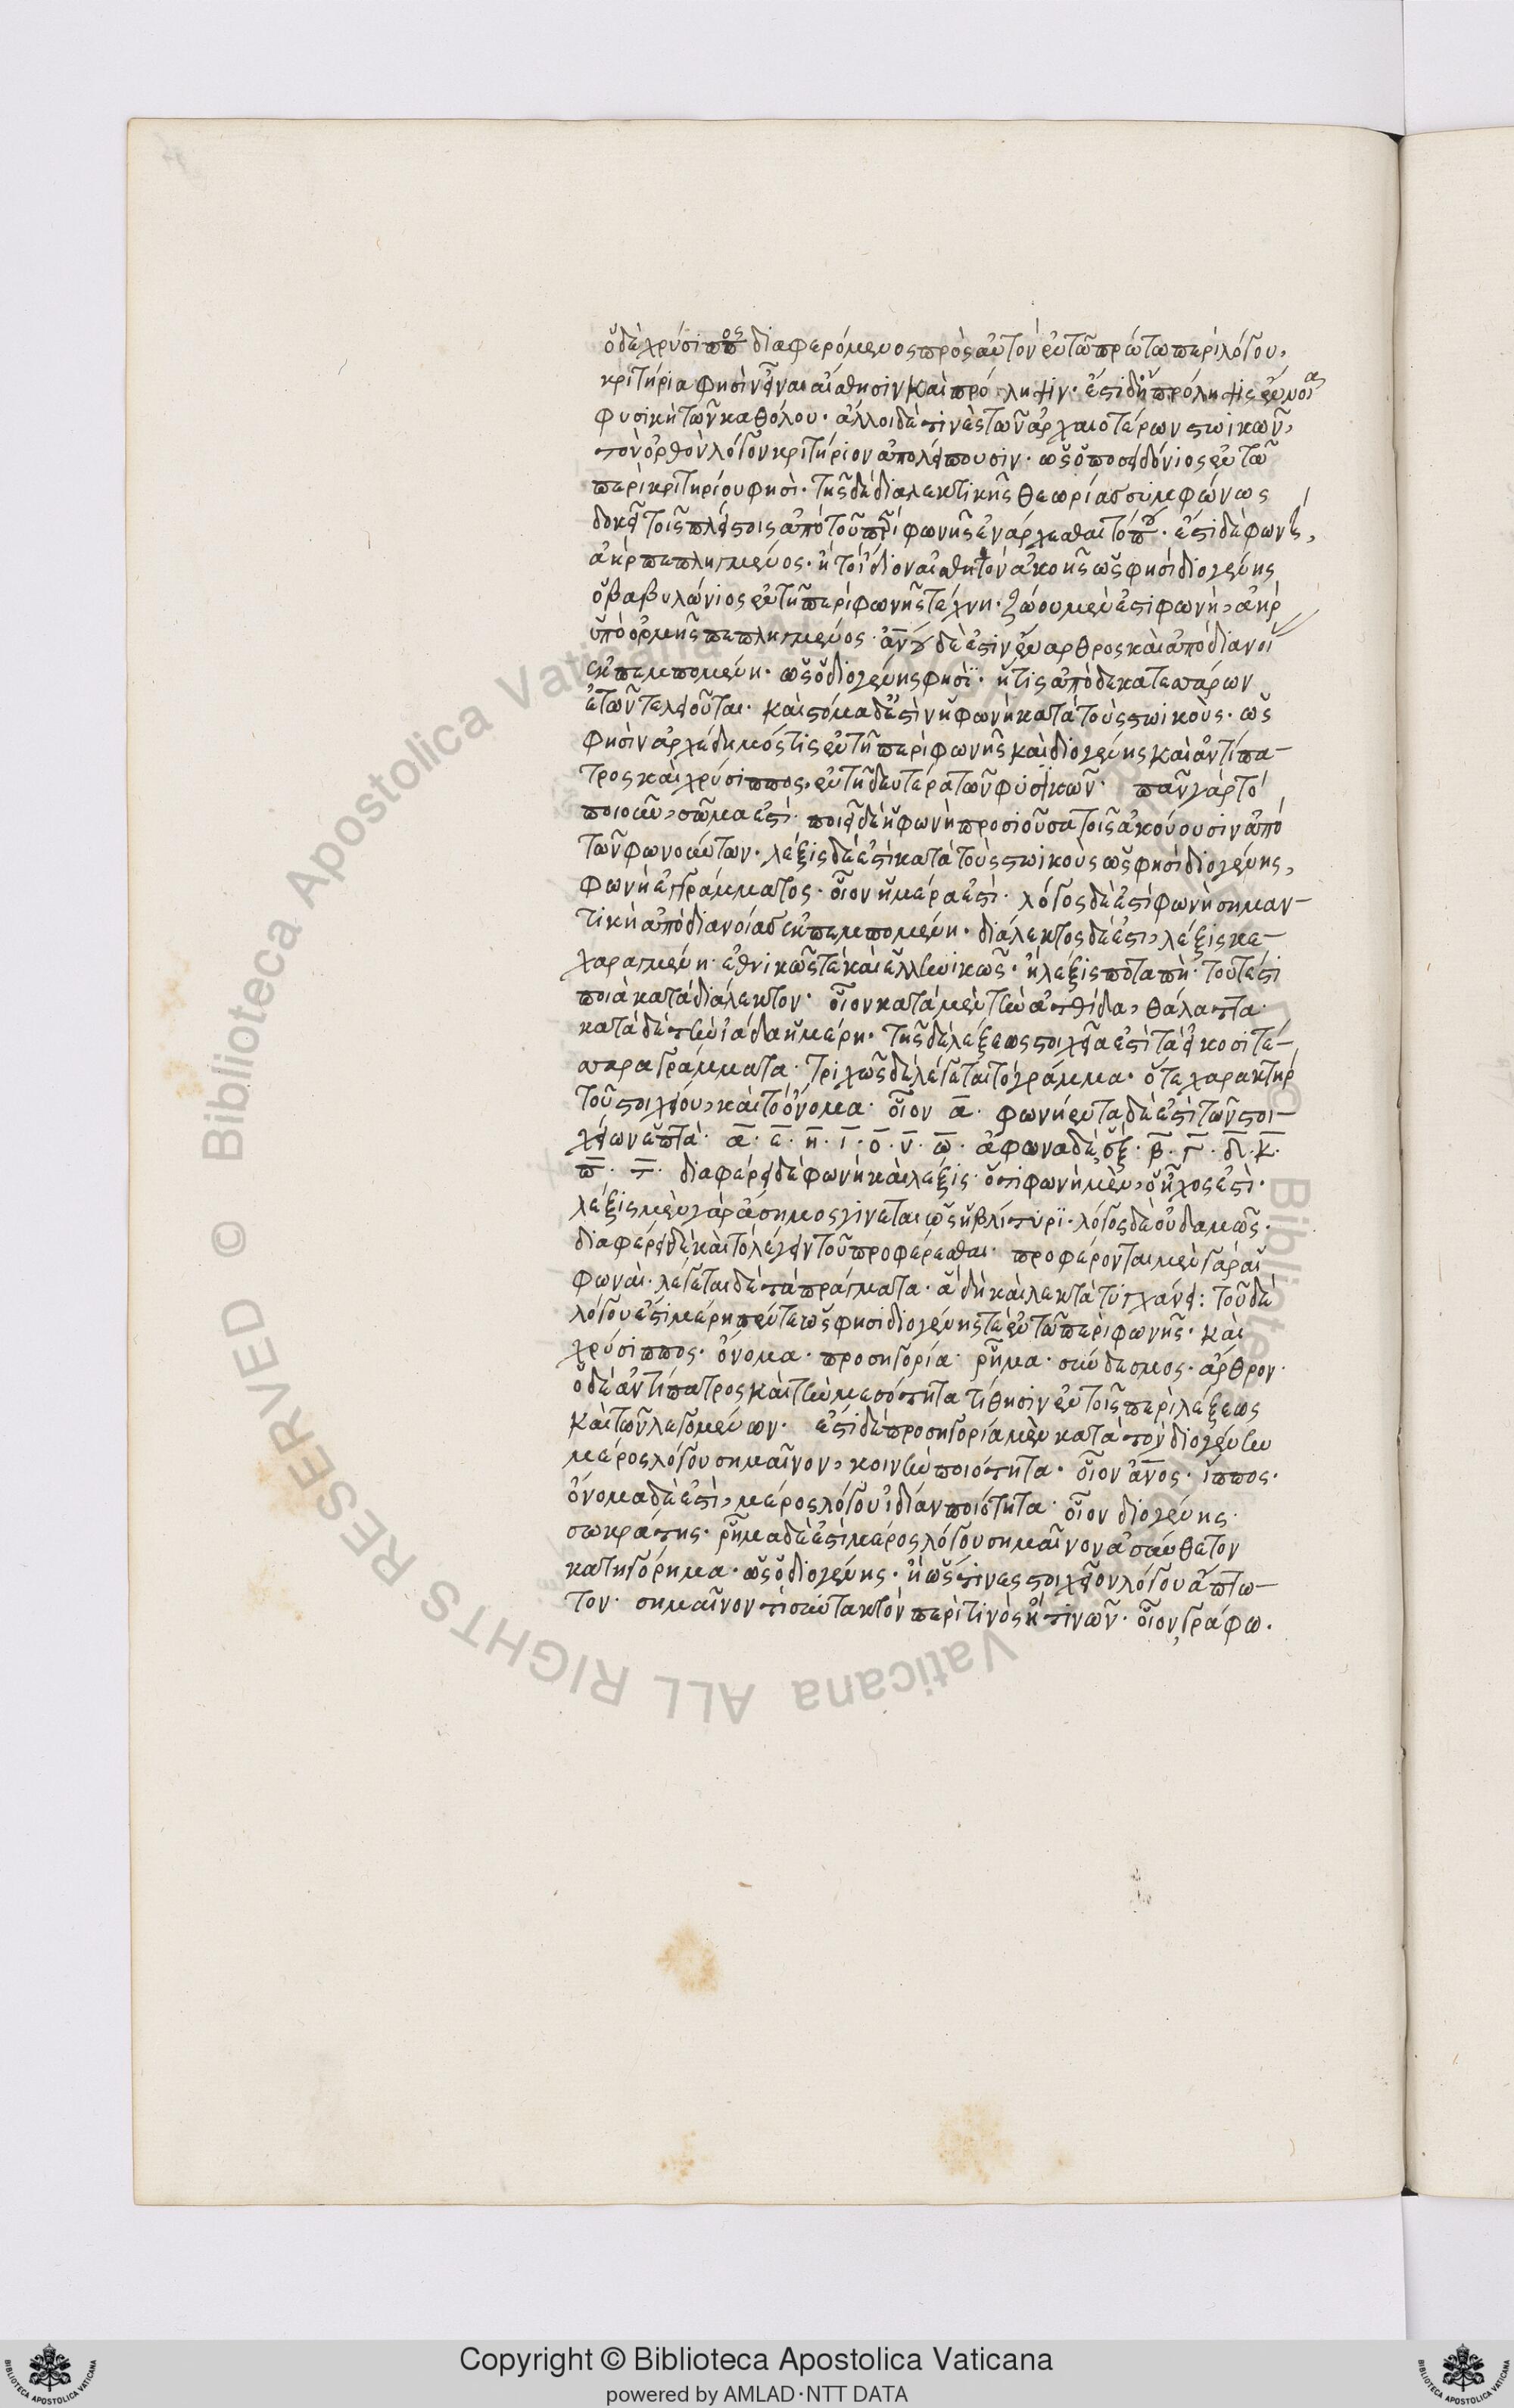 ὁ δὲ χρύσιππος διαφερόμενος πρὸς αὐτὸν ἐν τῶ πρώτω περὶ λόγου,
κριτήρια φησὶν εἶναι αἴσθησιν καὶ πρόληψιν· ἔστι δ' ἡ πρόληψις ἔννοια
φυσικὴ τῶν καθόλου· ἄλλοι δέ τινες τῶν ἀρχαιοτέρων στωικῶν,
τὸν ὀρθὸν λόγον κριτήριον ἀπολείπουσιν· ὡς ὁ ποσειδόνιος ἐν τῶ
περὶ κριτηρίου φησὶ· τῆς δὲ διαλεκτικῆς θεωρίας συμφώνως
δοκεῖ τοῖς πλείστοις ἀπὸ τοῦ περὶ φωνῆς ἐνάρχεσθαι τόπου· ἔστι δὲ φωνὴ,
ἀὴρ πεπληγμένος· ἢ τὸ ἴδιον αἰσθητὸν ἀκοῆς ὥς φησι διογένης
ὁ βαβυλώνιος ἐν τῆ περὶ φωνῆς τέχνη· ζώου μὲν ἐστι φωνὴ, ἀὴρ
ὑπὸ ὁρμῆς πεπληγμένος· ἀνου δὲ ἐστὶν ἔναρθρος καὶ ἀπὸ διανοί
ἐκπεμπομένη· ὡς ὁ διογένης φησὶ· ἥτις ἀπὸ δεκατεσσάρων
ἐτῶν τελειοῦται· καὶ σόμα δ' ἐστὶν ἡ φωνὴ κατὰ τοὺς στωικοὺς· ὥς
φησὶν ἀρχέδημός τις ἐν τῆ περὶ φωνῆς καὶ διογένης καὶ ἀντίπα-
τρος καὶ χρύσιππος, ἐν τῆ δευτέρα τῶν φυσικῶν· πᾶν γὰρ τὸ
ποιοῦν, σῶμα ἐστί· ποιεῖ δὲ ἡ φωνὴ προσιοῦσα τοῖς ἀκούουσιν ἀπὸ
τῶν φωνούντων· λέξις δέ ἐστι κατὰ τοὺς στωικοὺς ὥς φησι διογένης,
φωνὴ ἐγγράμματος· οἷον ἡμέρα ἐστὶ· λόγος δὲ ἐστὶ φωνὴ σημαν-
τικὴ ἀπὸ διανοίας ἐκπεμπομένη· διάλεκτος δέ ἐστι, λέξις κε-
χαραγμένη ἐθνικῶς τε καὶ ἑλληνικῶς· ἢ λέξις ποταπὴ· τουτέστι
ποιὰ κατὰ διάλεκτον· οἷον κατὰ μὲν τὴν ἀτθίδα, θάλαττα·
κατὰ δὲ τὴν ἰάδα ἡμέρη· τῆς δὲ λέξεως στοιχεῖα ἐστὶ τὰ εἰκοσιτέ-
σσαρα γράμματα· τριχῶς δὲ λέγεται τὸ γράμμα· ὅ τε χαρακτὴρ
τοῦ στοιχείου, καὶ τὸ ὄνομα· οἷον ᾱ· φωνήεντα δέ ἐστι τῶν στοι-
χείων ἑπτὰ· ᾱ· ε̄· η̄· ῑ· ο̄· ῡ· ω̄· ἄφωνα δὲ ἕξ· β̄· γ̄· δ̄· κ̄·
π̄· τ̄· διαφέρει δὲ φωνὴ καὶ λέξις· ὅτι φωνὴ μὲν, ὁ ἦχος ἐστὶ·
λέξις μὲν γὰρ ἄσημος γίνεται ὡς ἡ βλίτυρϊ· λόγος δὲ οὐδαμῶς·
διαφέρει δὲ καὶ τὸ λέγειν τοῦ προφέρεσθαι· προφέρονται μὲν γὰρ αἱ
φωναὶ· λέγεται δὲ τὰ πράγματα· ἃ δὴ καὶ λεκτὰ τυγχάνει: τοῦ δὲ
λόγου ἐστὶ μέρη πέντε ὥς φησι διογένης τε ἐν τῶ περὶ φωνῆς· καὶ
χρύσιππος· ὄνομα· προσηγορία· ῥῆμα· σύνδεσμος· ἄρθρον·
ὁ δὲ ἀντίπατρος καὶ τὴν μεσότητα τίθησιν ἐν τοῖς περὶ λέξεως
καὶ τῶν λεγομένων· ἔστι δὲ προσηγορία μὲν κατὰ τὸν διογένην
μέρος λόγου σημαῖνον, κοινὴν ποιότητα· οἷον ἄνος· ἵππος·
ὄνομα δέ ἐστὶ, μέρος λόγου ἰδίαν ποιότητα· οἷον διογένης·
σωκράτης· ῥῆμα δὲ ἐστὶ μέρος λόγου σημαῖνον ἀσύνθετον
κατηγόρημα· ὡς ὁ διογένης· ἢ ὥς τινες στοιχεῖον λόγου ἄπτω-
τον· σημαῖνον τι συντακτὸν περὶ τινὸς ἢ τινῶν· οἷον, γράφω·
Copyright © Biblioteca Apostolica Vaticana
powered by AMLAD·NTT DATA
BIBLIOTECA APOSTOLICA VATICANA
BIBLIOTECA APOSTOLICA VATICANA
© Biblioteca Apostolica Vaticana ALL RIGHTS RESERVED